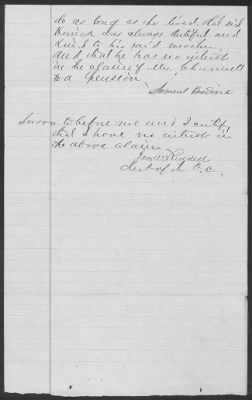 do as long as he lived, that said
Derrick was always dutiful and
Kind to his said mother
and that he has no interest
in the claim of this claimant
to a pension
Samuel Bodine
Sworn to before me and I certify
that I have no interest in
the above claim
Clerk of the O.C.